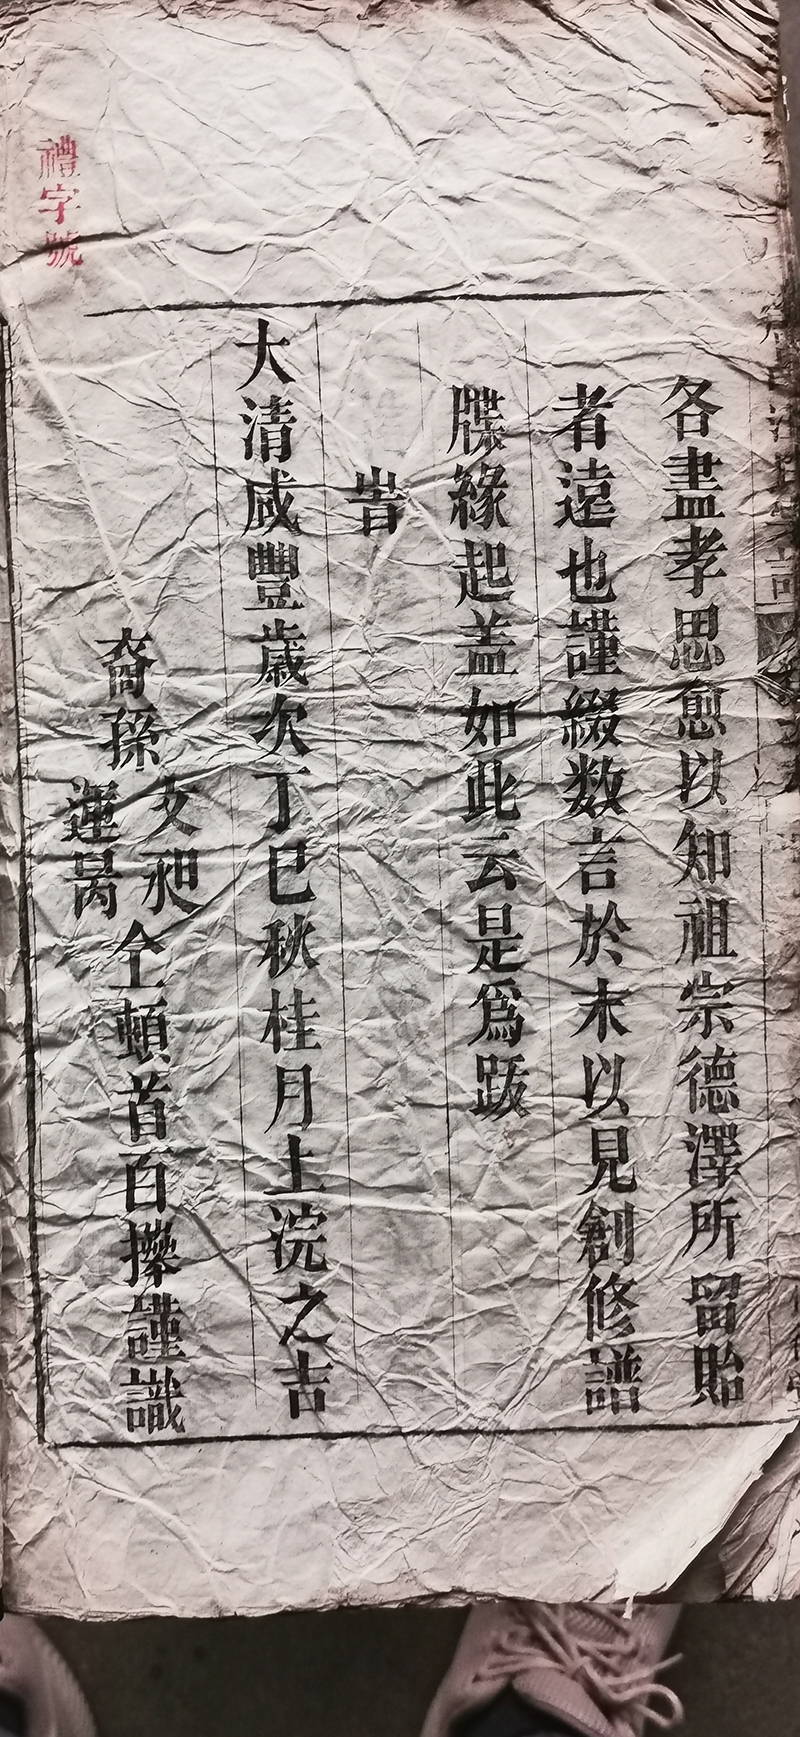 各盡孝思愈以知祖宗德澤所留貽
者遠也謹綴数言於末以見創修譜
牒緣起盖如此云是爲跋
旹
大清咸豐歲次丁巳秋桂月上浣之吉
裔孫 文昶 運昺 仝頓首百攃謹識
禮字號